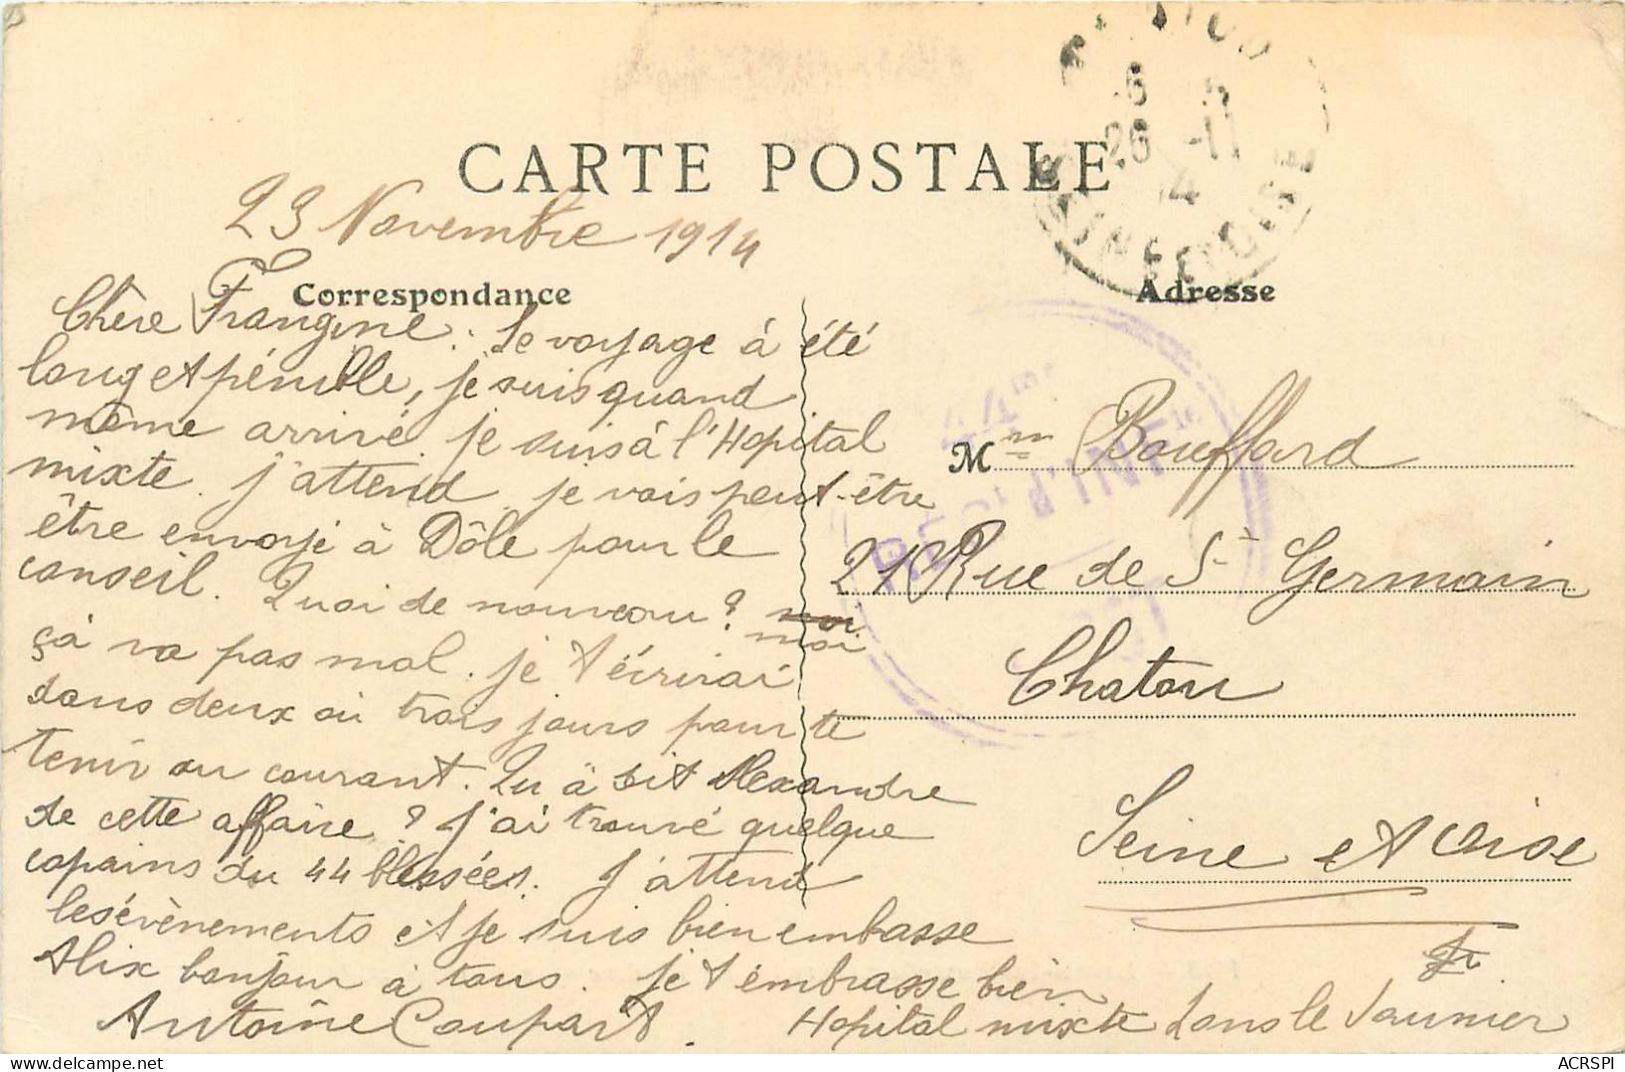 CARTE POSTALE
23 Novembre 1914
Correspondance
Chère Frangine. Le voyage à été
long et pénible, je suis quand
même arrivé. je suis à l'Hopital
mixte. j'attend je vais peut-être
être envoyé à Dôle pour le
conseil. Quoi de nouveau?
moi
çà va pas mal. je t'écrirai
dans deux ou trois jours pour te
tenir au courant. Qu'a dit Alexandre
de cette affaire? J'ai trouvé quelque
copains du 44 blessées. J'attend
les évènements et je suis bien embrasse
Alix bonjour à tous. je t'embrasse bien
Antoine Coupart.
Hopital mixte Lons le Saunier
Adresse
Mme Bouffard
21 Rue de St Germain
Chatou
Seine et Oise
44me
RÉGt d'INFie
26 -11
14
SEINE-ET-OISE
ACRSPI